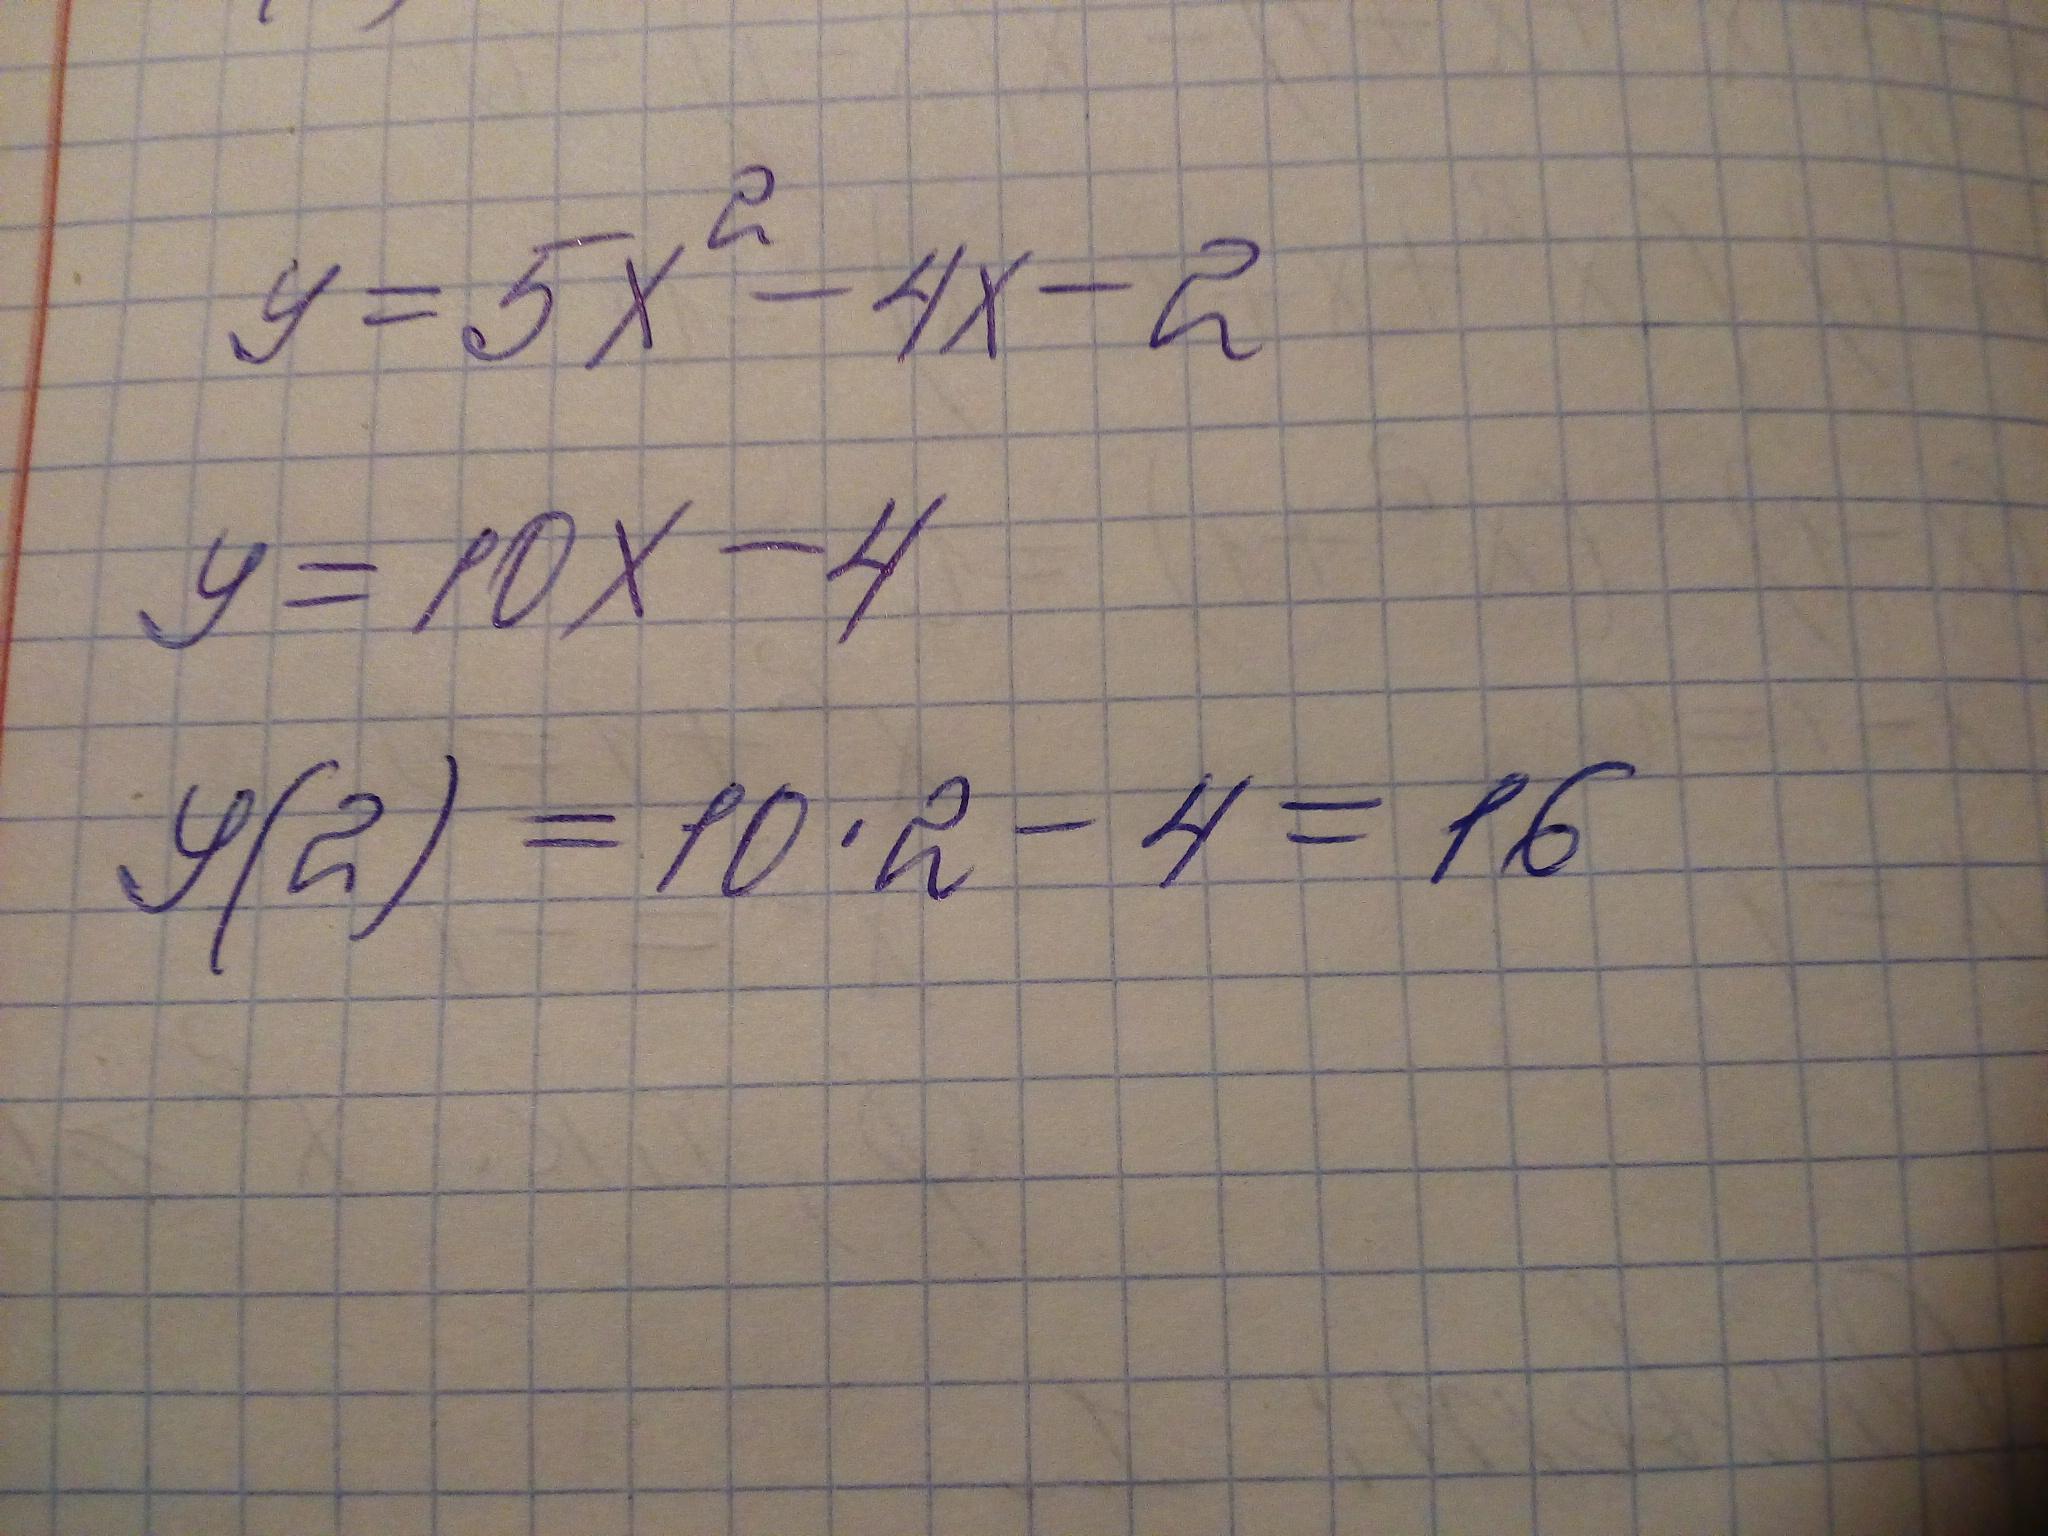 y = 5x² - 4x - 2
y = 10x - 4
y(2) = 10 · 2 - 4 = 16